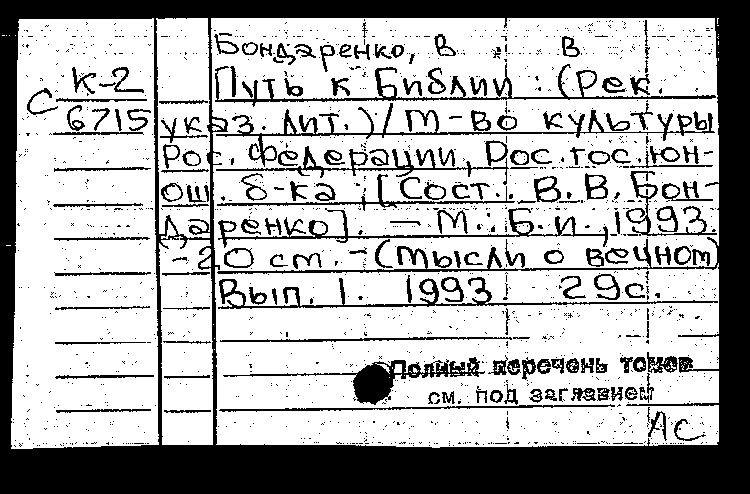 Бондаренко, В. В
С К-2 Путь к Библии : (Рек.
6715 указ. лит.) / М-во культуры
Рос. Федерации, Рос. гос. юн-
ош. б-ка ; [Сост.: В. В. Бон-
даренко]. – М. : Б. и., 1993.
- 20 см. – (Мысли о вечном)
Вып. 1. 1993. 29с.
Полный перечень томов
см. под заглавием
Ас